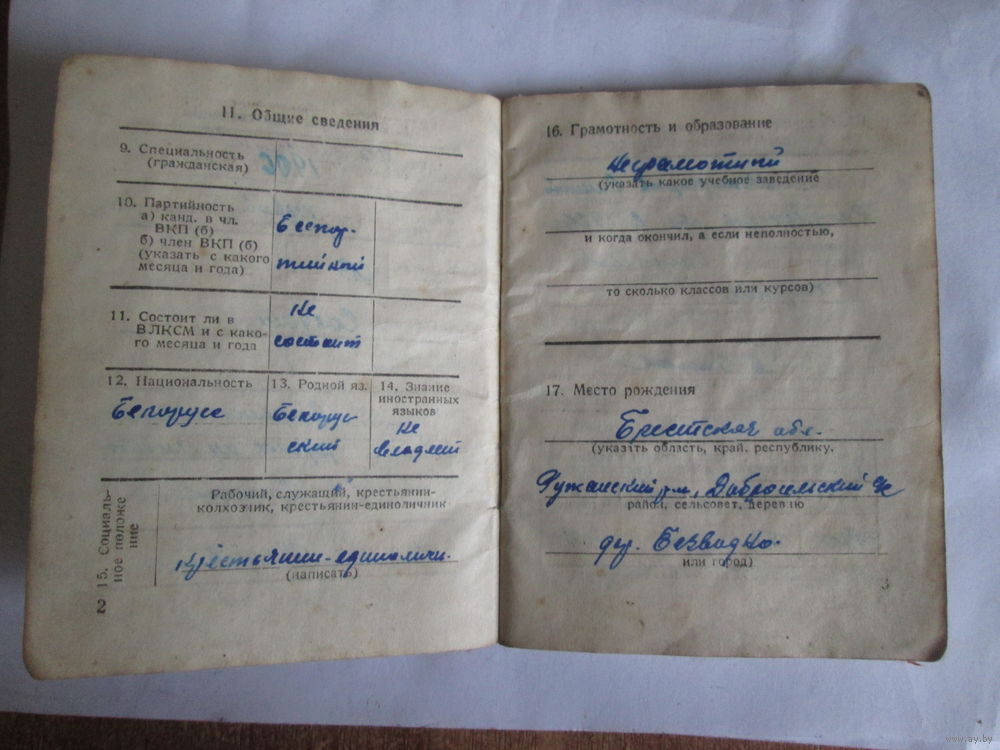 11. Общие сведения
9. Специальность
(гражданская)
10. Партийность
а) канд. в чл.
ВКП (б)
б) член ВКП (б)
(указать с какого
месяца и года)
Беспар-
тийный
11. Состоит ли в
ВЛКСМ и с како-
го месяца и года
Не
состоит
12. Национальность
Белорусс
13. Родной яз.
Белорус
ский
14. Знание
иностранных
языков
Не
владеет
15. Социаль-
ное положе
ние
Рабочий, служащий, крестьянин-
колхозник, крестьянин-единоличник
Крестьянин-единоличн.
(написать)
2
16. Грамотность и образование
Неграмотный
(указать какое учебное заведение
и когда окончил, а если неполностью,
то сколько классов или курсов)
17. Место рождения
Брестская обл.
(указать область, край, республику,
Ружанский р-н, Доброселъский
район, сельсовет, деревню
дер.
или город)
3
www.ay.by